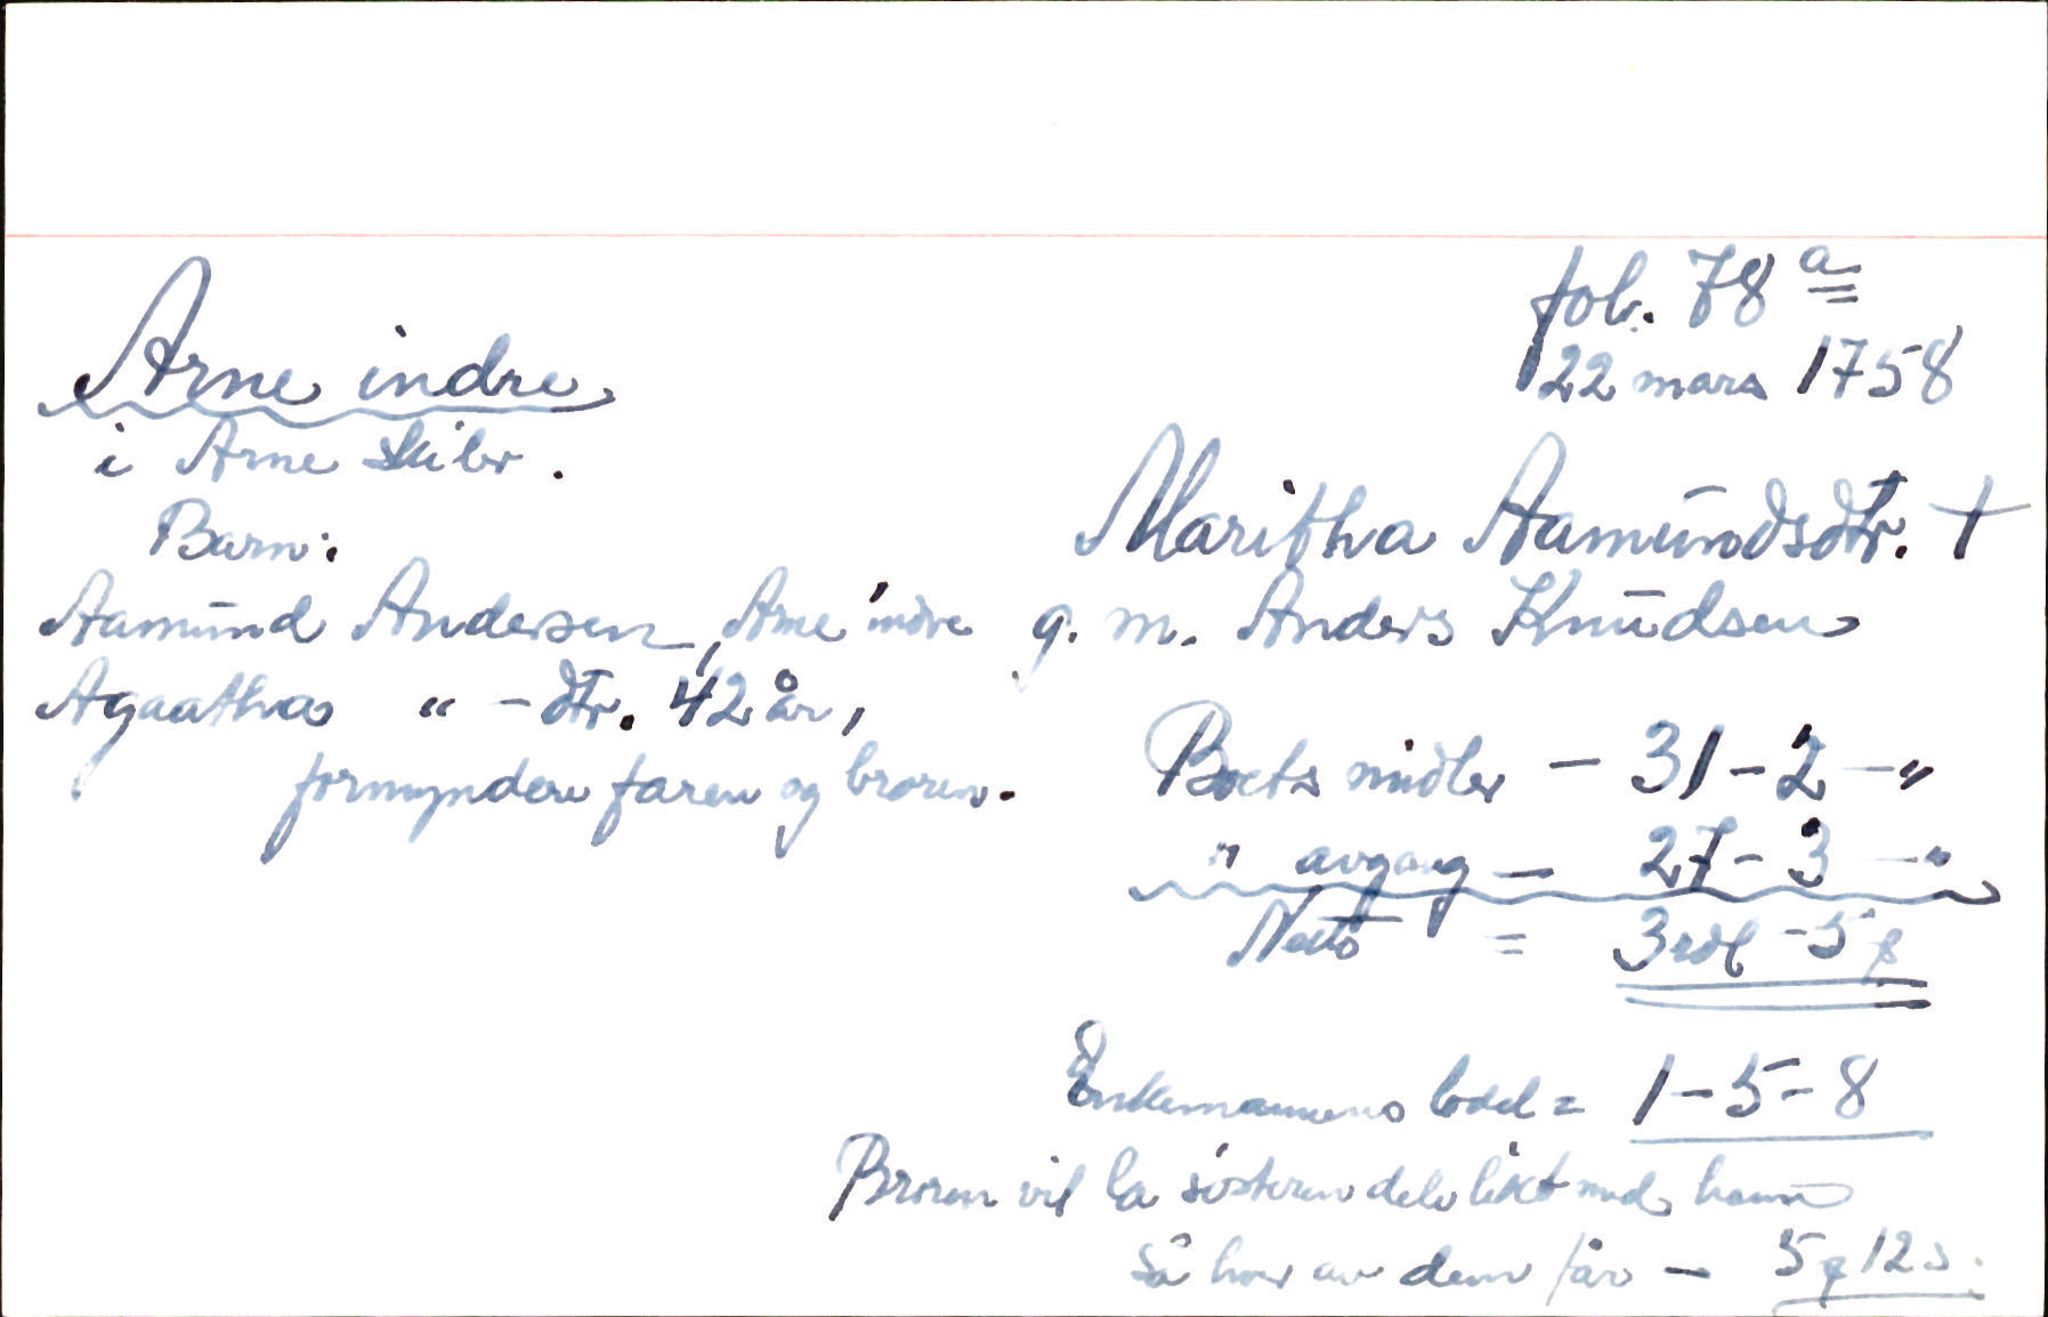 fol. 78 a
22 mars 1758
Arne indre
i Arne skibr.
Maritha Aamūndsdtr. †
g. m. Anders Knūdsen
Barn:
Aamūnd Andersen, Arne indre
Agaatha " - dtr. 42 år,
formyndere faren og broren.
Boets midler - 31 - 2 - "
" avgang - 27 - 3 - "
Netto = 3 rdl - 5 ƒ
Enkemannens lodd = 1 - 5 - 8
Broren vil la søsteren dele likt med ham
så hver av dem får - 5 ƒ 12 s.